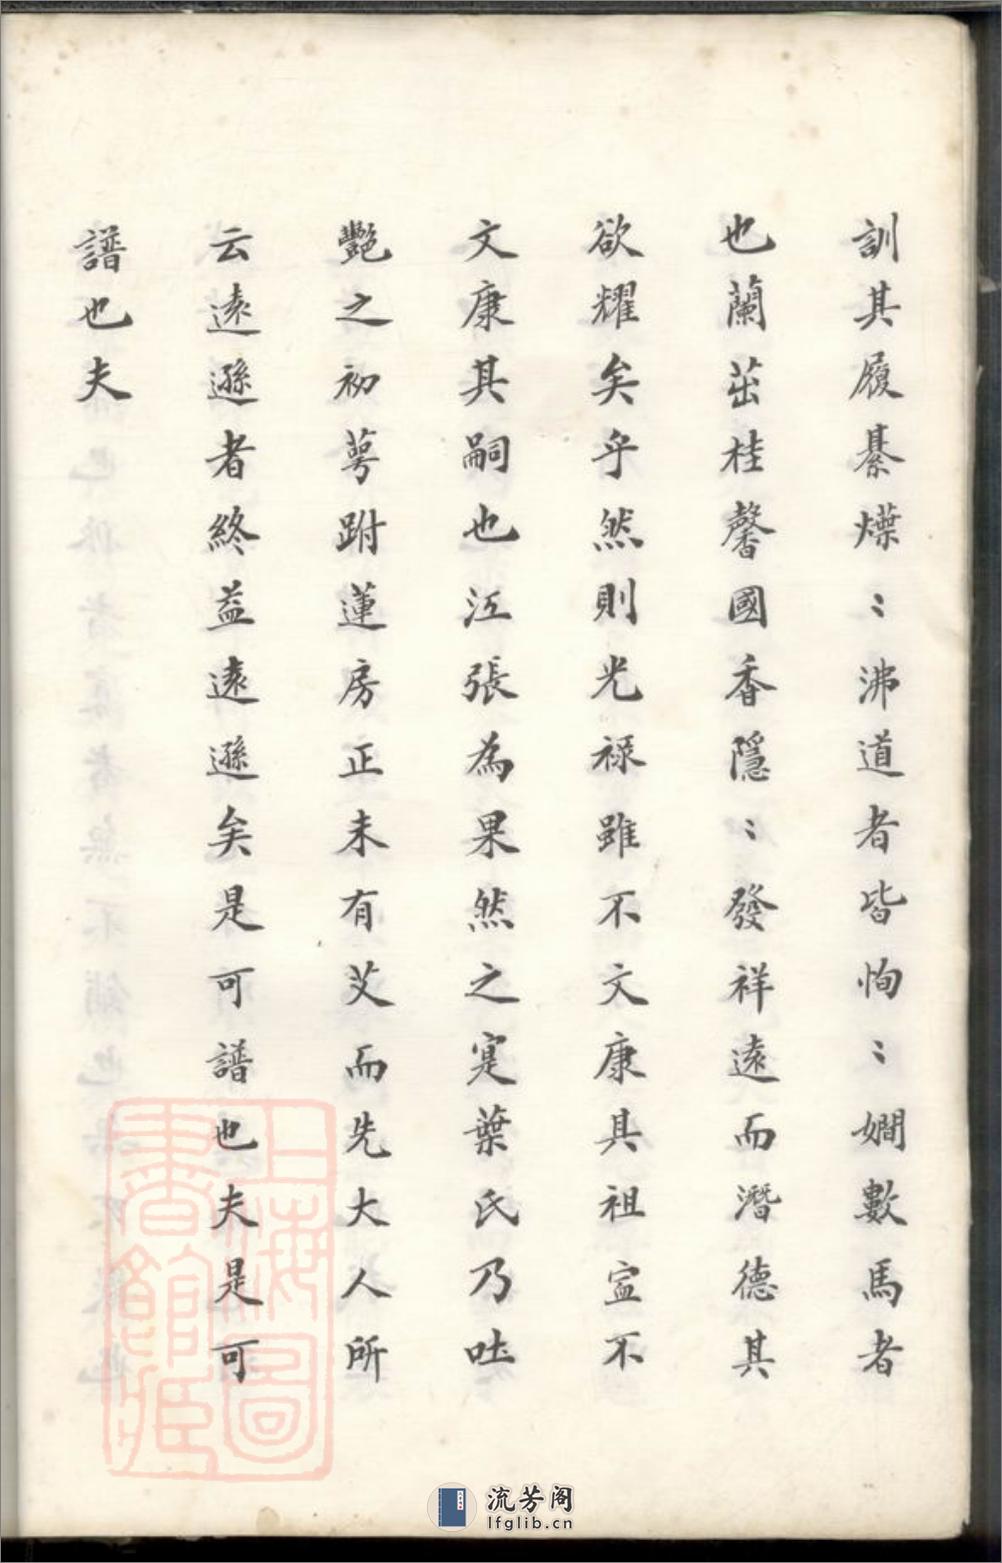 訓其履綦爗〻沸道者皆恂〻嫺數馬者
也蘭茁桂馨國香隱〻發祥遠而潛德其
欲耀矣乎然則光祿雖不文康其祖寍不
文康其嗣也江張為果然之寔葉氏乃吐
艷之初萼跗蓮房正未有艾而先大人所
云遠遜者終益遠遜矣是可譜也夫是可
譜也夫
上海圖
書館藏
流芳阁
lfglib.cn